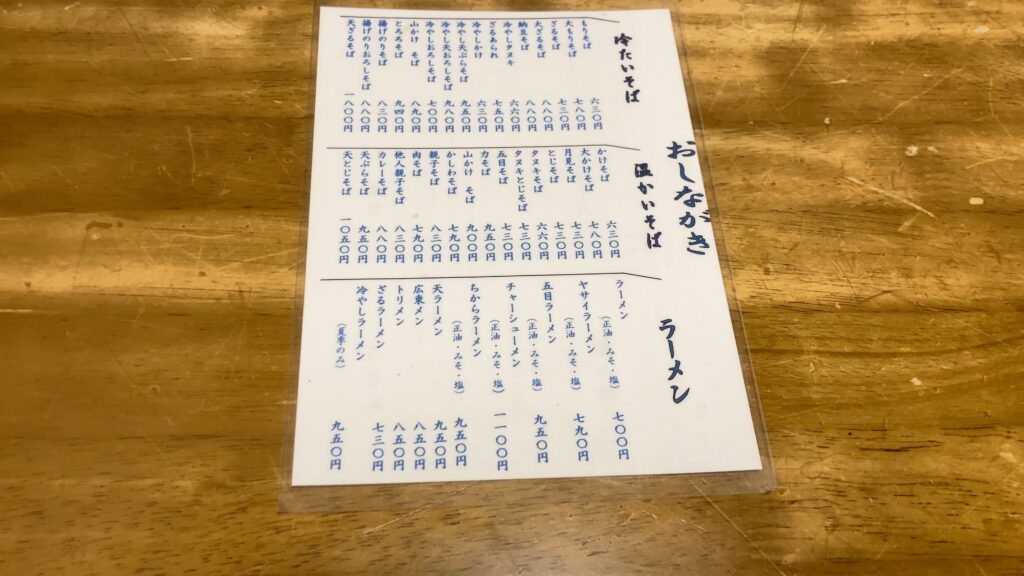 おしながき
冷たいそば
もりそば 六三〇円
大もりそば 七八〇円
ざるそば 七三〇円
大ざるそば 八八〇円
納豆そば 八八〇円
冷やしタヌキ 六六〇円
ざるあられ 七五〇円
冷やしかけ 六三〇円
冷やし天ぷらそば 九五〇円
冷やし天おろしそば 九八〇円
冷やしおろしそば 七〇〇円
山かけ そば 八九〇円
とろろそば 九四〇円
揚げのりそば 八三〇円
揚げのりおろしそば 八八〇円
天ざるそば
温かいそば
かけそば 六三〇円
大かけそば 七八〇円
月見そば 七三〇円
とじそば 七三〇円
タヌキそば 六六〇円
タヌキとじそば 七三〇円
五目そば 七三〇円
力そば 九五〇円
山かけ そば 九〇〇円
かしわそば 七九〇円
親子そば 八三〇円
肉そば 七九〇円
他人親子そば 八三〇円
カレーそば 八八〇円
天ぷらそば 九五〇円
天とじそば 一〇五〇円
ラーメン
ラーメン（正油・みそ・塩） 七〇〇円
ヤサイラーメン（正油・みそ・塩） 七九〇円
五目ラーメン（正油・みそ・塩） 九五〇円
チャーシューメン（正油・みそ・塩） 一一〇〇円
ちからラーメン（正油・みそ・塩） 九五〇円
天ラーメン 九五〇円
広東メン 八五〇円
トリメン 八五〇円
ざるラーメン 七三〇円
冷やしラーメン（夏季のみ） 九五〇円